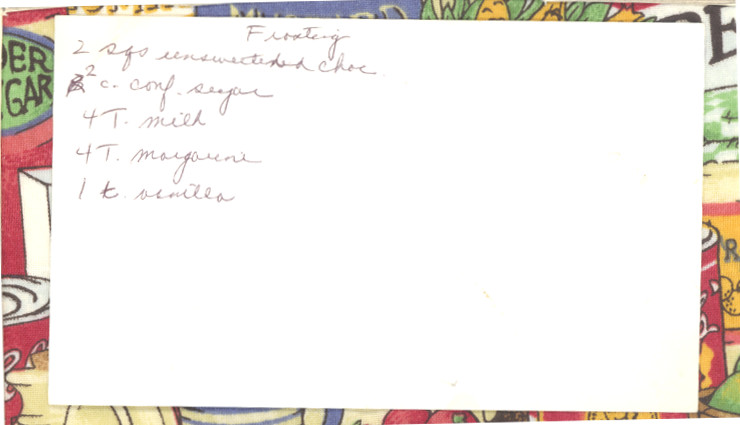 Frosting
2 sqs unsweetened choc
2 c. conf. sugar
4 T. milk
4 T. margarine
1 t. vanilla
DER
EGAR